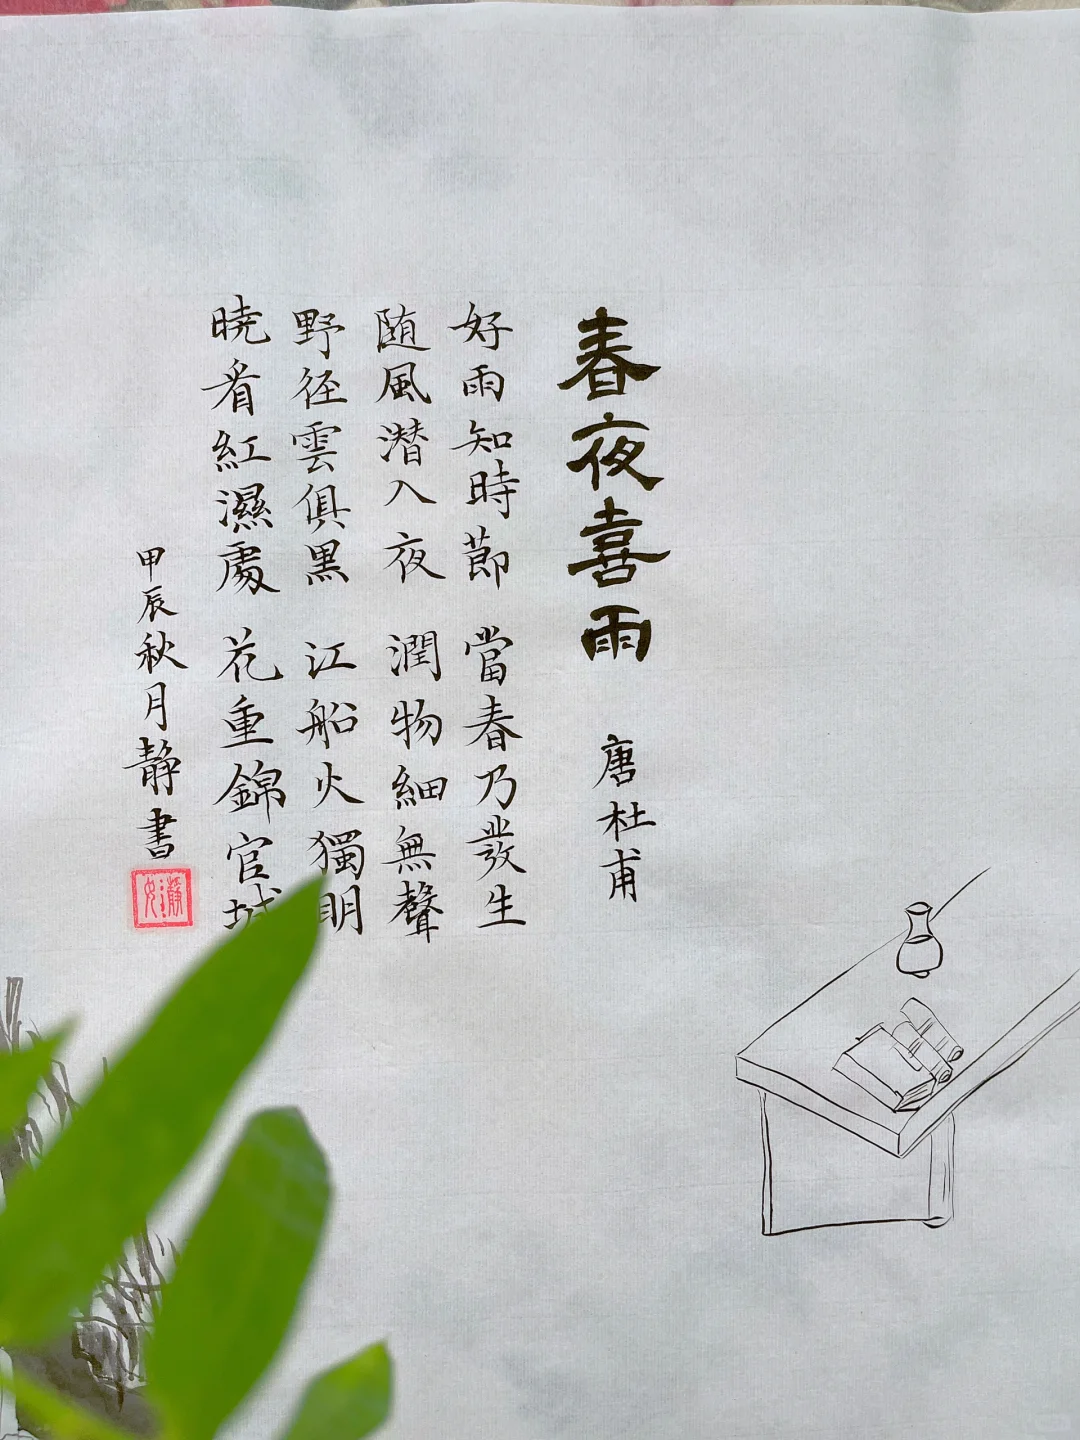 春夜喜雨
唐杜甫
好雨知時節 當春乃發生
随風潜入夜 潤物細無聲
野径雲俱黑 江船火獨明
曉看紅濕處 花重錦官城
甲辰秋月靜書